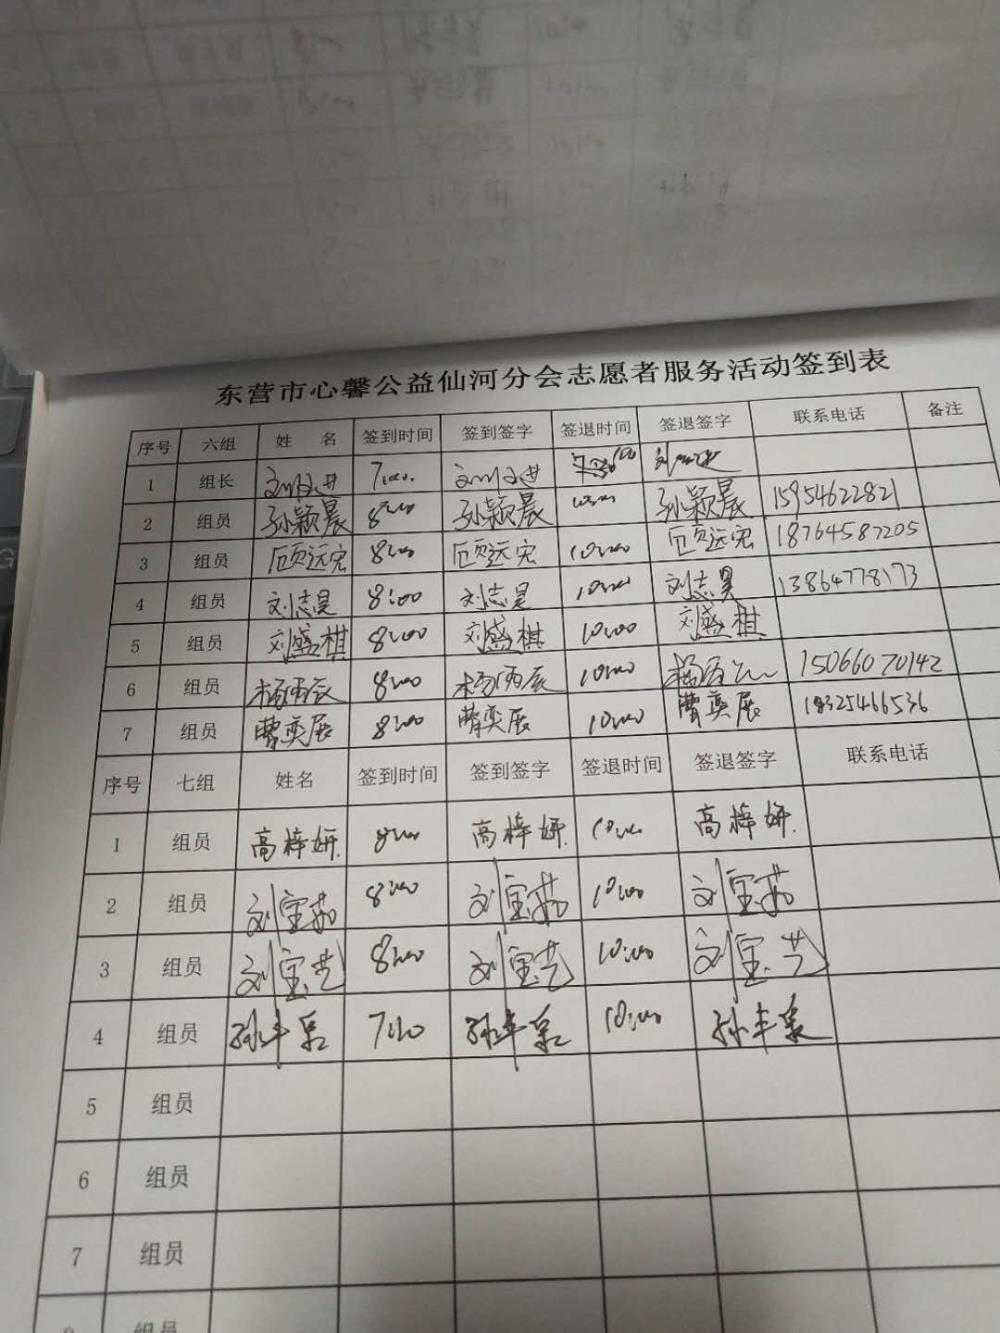 东营市心馨公益仙河分会志愿者服务活动签到表
序号 六组 姓 名 签到时间 签到签字 签退时间 签退签字 联系电话 备注
1 组长
2 组员 孙颖晨 8:00 孙颖晨 10:00 孙颖晨 15954622821
3 组员 8:00 10:00 18764587205
4 组员 刘志昊 8:00 刘志昊 10:00 刘志昊 13864778173
5 组员 刘盛棋 8:00 刘盛棋 10:00 刘盛棋
6 组员 杨雨辰 8:00 杨雨辰 10:00 15066070142
7 组员 曹奕展 8:00 曹奕展 10:00 曹奕展 18325466536
序号 七组 姓名 签到时间 签到签字 签退时间 签退签字 联系电话
1 组员 高梓妍 8:00 高梓妍 10:00 高梓妍
2 组员 刘宝茹 8:00 刘宝茹 10:00 刘宝茹
3 组员 刘宝艺 8:00 刘宝艺 10:00 刘宝艺
4 组员 孙丰泉 孙丰泉 10:00 孙丰泉
5 组员
6 组员
7 组员
组员